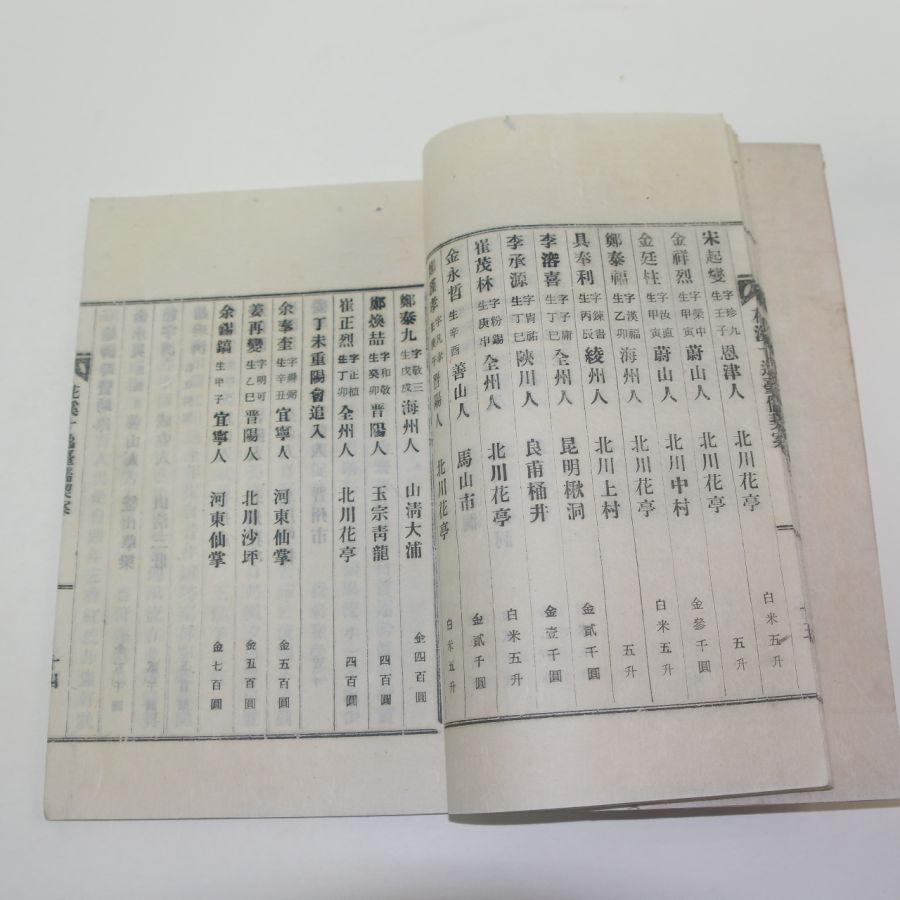 宋起燮 字珍九 生壬子 恩津人 北川花亭 白米五升
金祥烈 字榮中 生甲寅 蔚山人 北川花亭 五升
金廷柱 字汝直 生甲寅 蔚山人 北川中村 金參千圓
鄭泰福 字漢福 生乙卯 海州人 北川花亭 白米五升
具奉利 字鍊書 生丙辰 綾州人 北川上村 五升
李溶喜 字子庸 生丁巳 全州人 昆明楸洞 金貳千圓
李承源 字胄祐 生丁巳 陜川人 良甫桶井 金壹千圓
崔茂林 字粉錫 生庚申 全州人 北川花亭 白米五升
金永哲 生辛酉 善山人 馬山市 金貳千圓
晋陽人 北川花亭 白米五升
鄭泰九 字敬三 生戊戌 海州人 山淸大浦 金四百圓
鄭煥喆 字和敬 生癸卯 晋陽人 玉宗靑龍 四百圓
崔正烈 字正植 生丁卯 全州人 北川花亭 四百圓
丁未重陽會追入
余奉奎 字舜弼 生辛丑 宜寧人 河東仙掌 金五百圓
姜再燮 字明可 生乙巳 晋陽人 北川沙坪 金五百圓
余錫鎬 生甲子 宜寧人 河東仙掌 金七百圓
十四